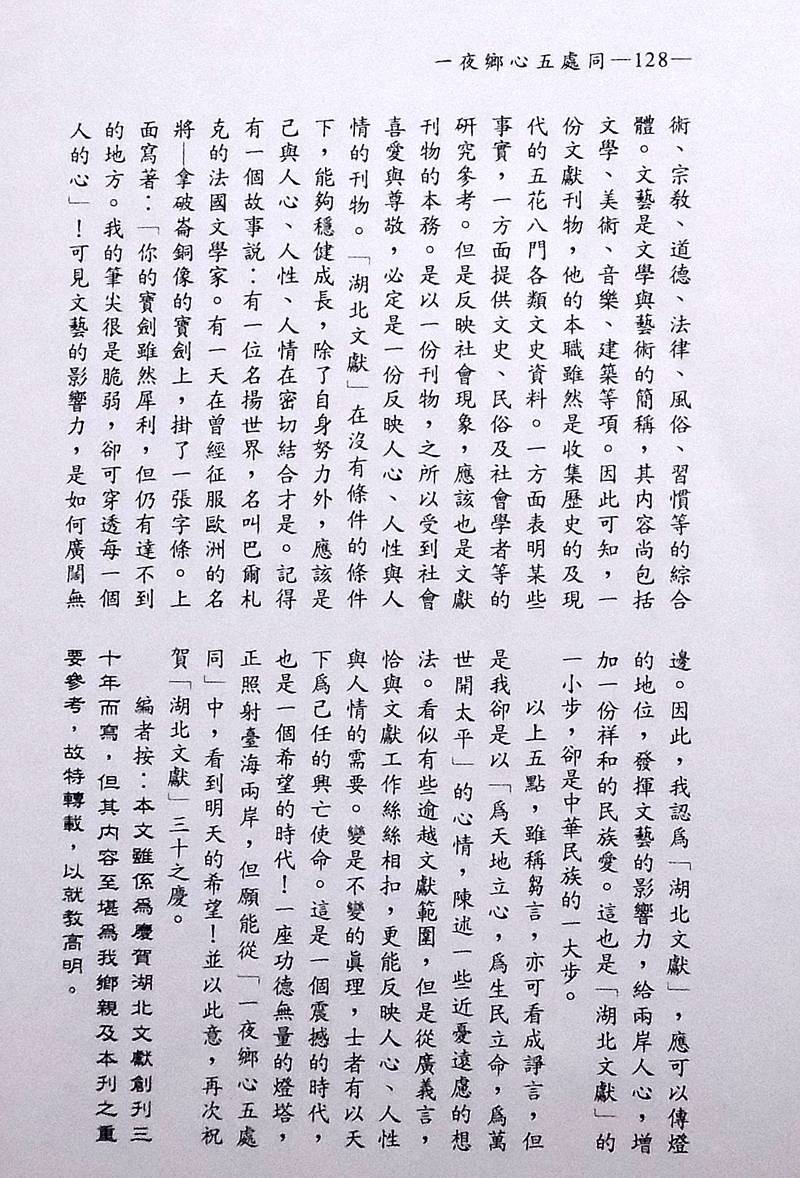 一夜鄉心五處同—128—
術、宗教、道德、法律、風俗、習慣等的綜合
體。文藝是文學與藝術的簡稱，其內容尚包括
文學、美術、音樂、建築等項。因此可知，一
份文獻刊物，他的本職雖然是收集歷史的及現
代的五花八門各類文史資料。一方面表明某些
事實，一方面提供文史、民俗及社會學者等的
研究參考。但是反映社會現象，應該也是文獻
刊物的本務。是以一份刊物，之所以受到社會
喜愛與尊敬，必定是一份反映人心、人性與人
情的刊物。「湖北文獻」在沒有條件的條件
下，能夠穩健成長，除了自身努力外，應該是
己與人心、人性、人情在密切結合才是。記得
有一個故事說：有一位名揚世界，名叫巴爾札
克的法國文學家。有一天在曾經征服歐洲的名
將—拿破崙銅像的寶劍上，掛了一張字條。上
面寫著：「你的寶劍雖然犀利，但仍有達不到
的地方。我的筆尖很是脆弱，卻可穿透每一個
人的心」！可見文藝的影響力，是如何廣闊無
邊。因此，我認爲「湖北文獻」，應可以傳燈
的地位，發揮文藝的影響力，給兩岸人心，增
加一份祥和的民族愛。這也是「湖北文獻」的
一小步，卻是中華民族的一大步。
以上五點，雖稱芻言，亦可看成諍言，但
是我卻是以「爲天地立心，爲生民立命，爲萬
世開太平」的心情，陳述一些近憂遠慮的想
法。看似有些逾越文獻範圍，但是從廣義言，
恰與文獻工作絲絲相扣，更能反映人心、人性
與人情的需要。變是不變的眞理，士者有以天
下爲己任的興亡使命。這是一個震撼的時代，
也是一個希望的時代！一座功德無量的燈塔，
正照射臺海兩岸，但願能從「一夜鄉心五處
同」中，看到明天的希望！並以此意，再次祝
賀「湖北文獻」三十之慶。
編者按：本文雖係爲慶賀湖北文獻創刊三
十年而寫，但其內容至堪爲我鄉親及本刊之重
要參考，故特轉載，以就教高明。